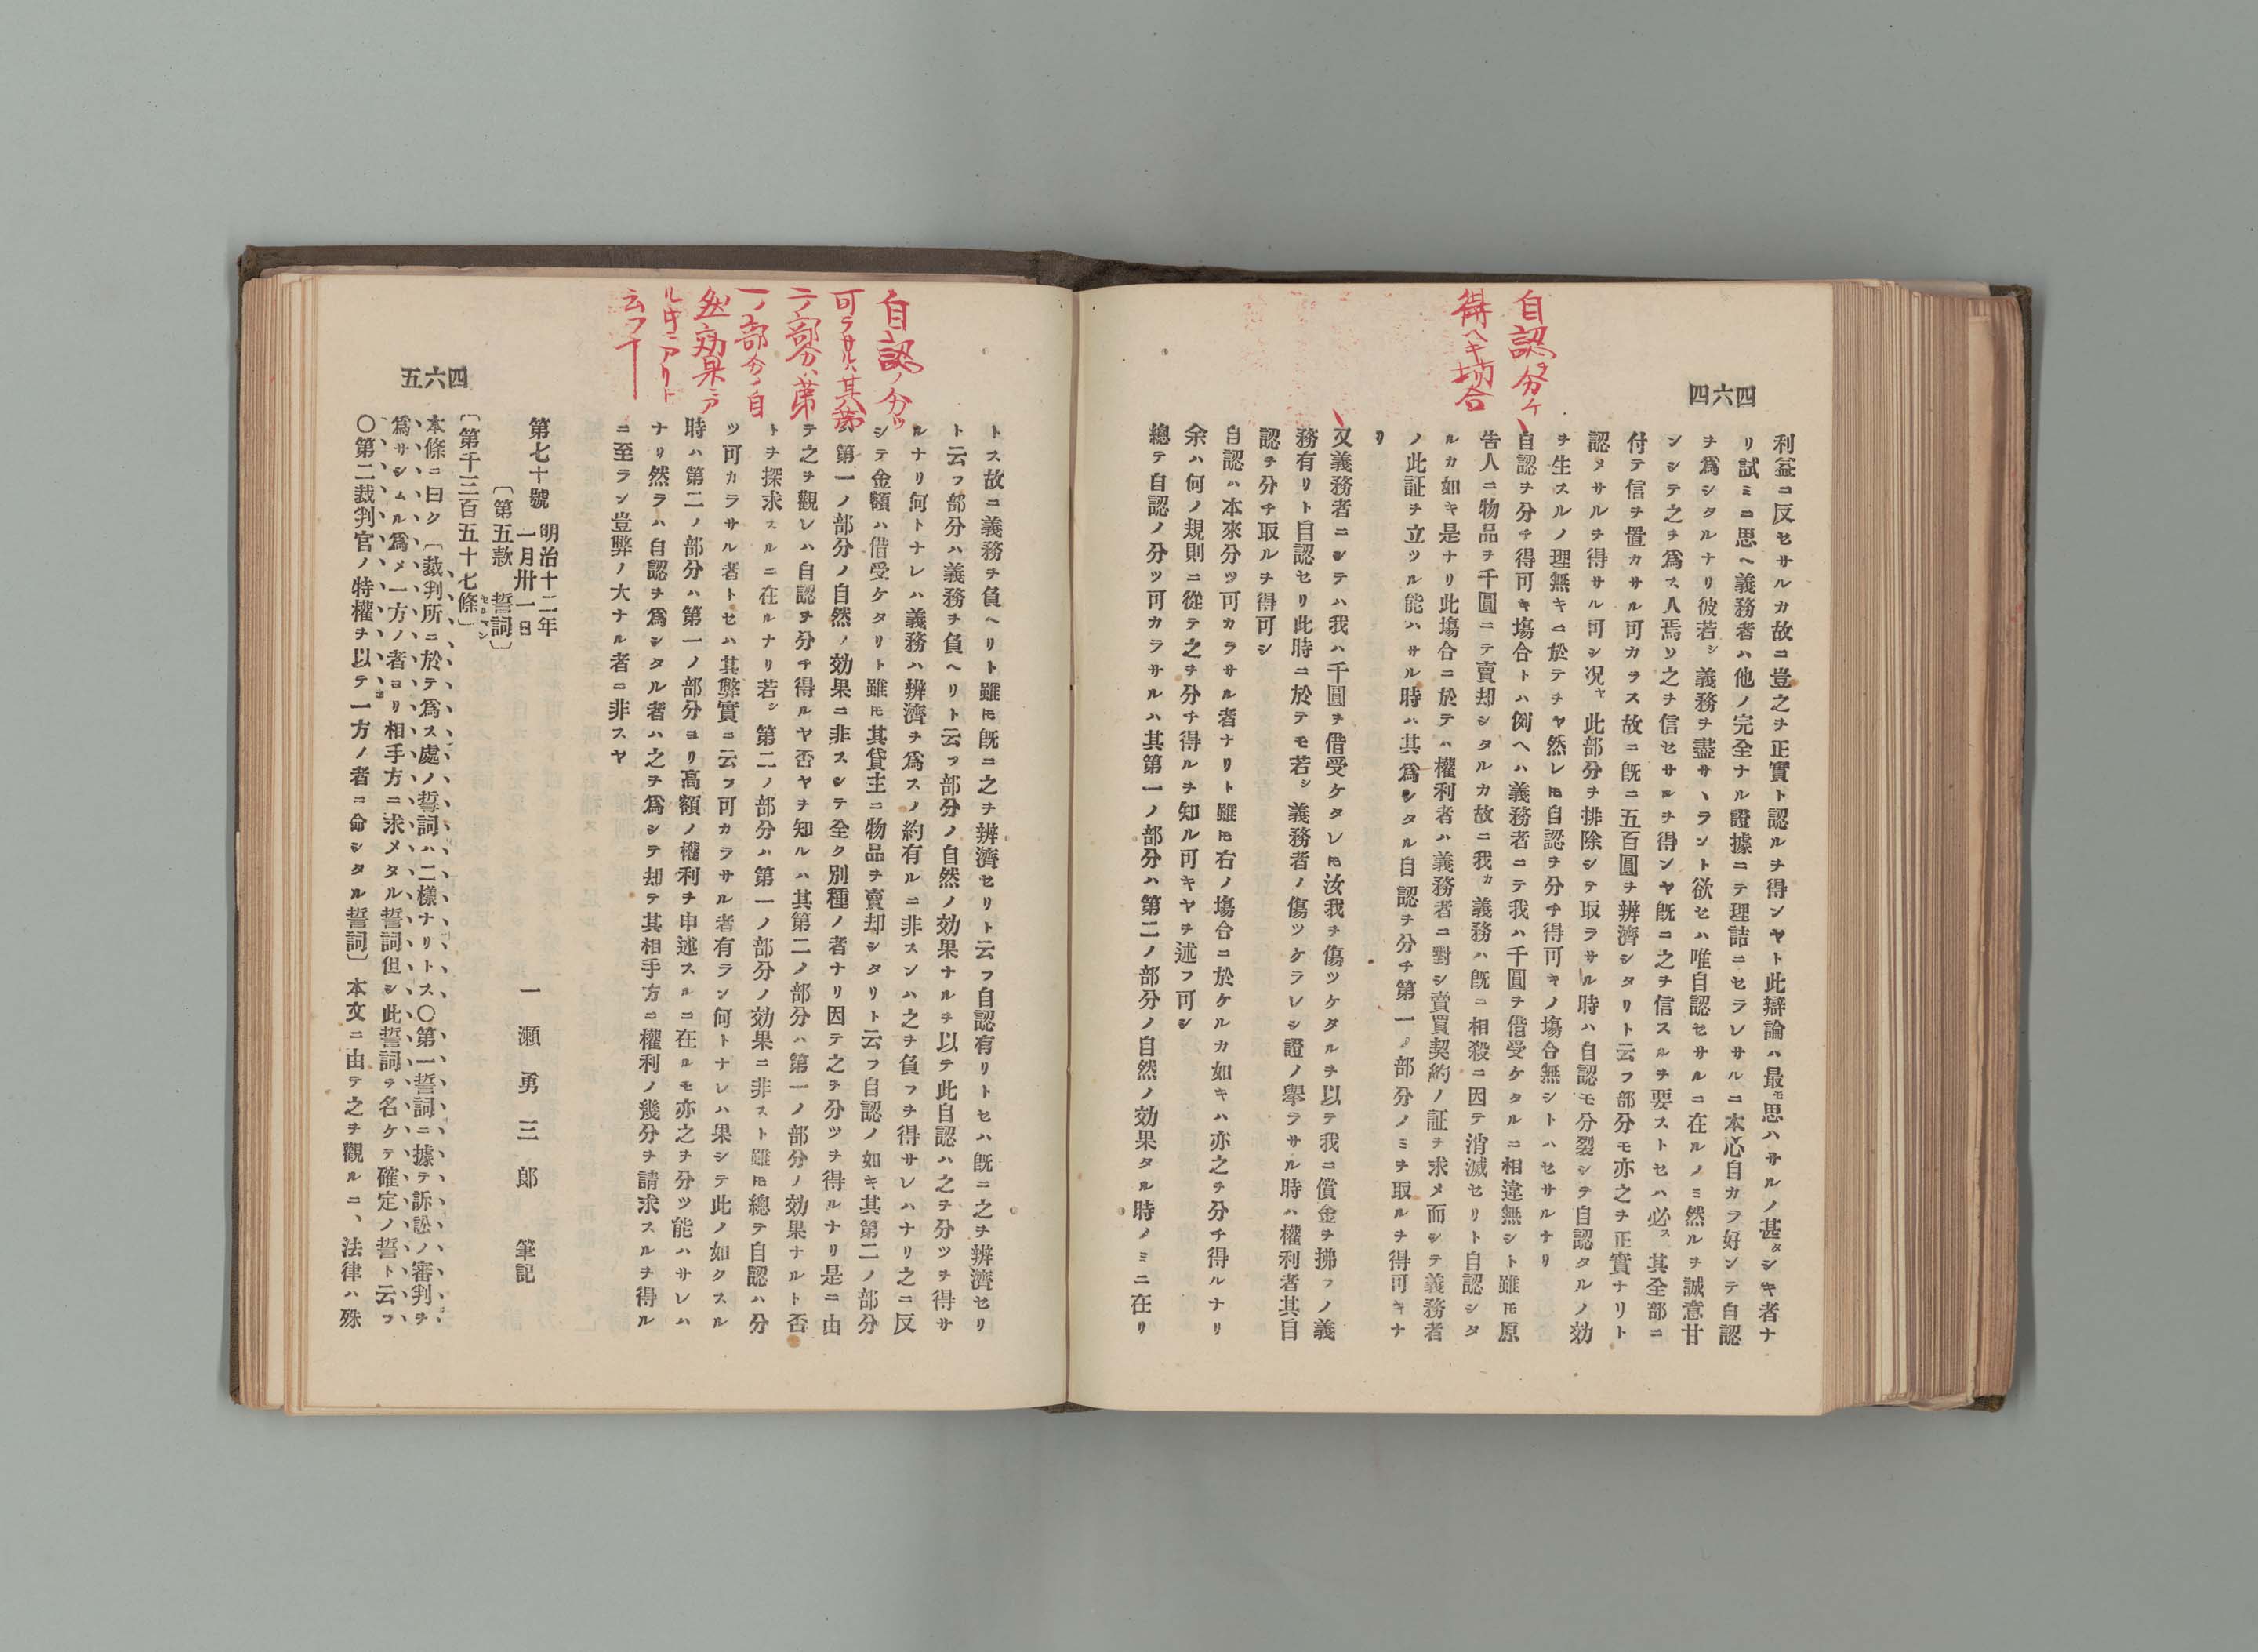 四六四
自認ヲ分ケ
得ヘキ場合
利益ニ反セサルカ故ニ豈之ヲ正實ト認ルヲ得ンヤト此辯論ハ最モ思ハサルノ甚タシキ者ナ
リ試ミニ思ヘ義務者ハ他ノ完全ナル證據ニテ理詰ニセラレサルニ本心自カラ好ンテ自認
ヲ爲シタルナリ彼若シ義務ヲ盡サヽラント欲セハ唯自認セサルニ在ルノミ然ルヲ誠意甘
ンシテ之ヲ爲ス人焉ソ之ヲ信セサルヲ得ンヤ既ニ之ヲ信スルヲ要ストセハ必ス其全部ニ
付テ信ヲ置カサル可カラス故ニ既ニ五百圓ヲ辨濟シタリト云フ部分モ亦之ヲ正實ナリト
認メサルヲ得サル可シ况ヤ此部分ヲ排除シテ取ラサル時ハ自認モ分裂シテ自認タルノ効
ヲ生スルノ理無キニ於テヲヤ然レ𪜈自認ヲ分チ得可キノ塲合無シトハセサルナリ
自認ヲ分チ得可キ塲合トハ例ヘハ義務者ニテ我ハ千圓ヲ借受ケタルニ相違無シト雖𪜈原
告人ニ物品ヲ千圓ニテ賣却シタルカ故ニ我カ義務ハ既ニ相殺ニ因テ消滅セリト自認シタ
ルカ如キ是ナリ此塲合ニ於テハ權利者ハ義務者ニ對シ賣買契約ノ証ヲ求メ而シテ義務者
ノ此証ヲ立ツル能ハサル時ハ其爲シタル自認ヲ分チ第一ノ部分ノミヲ取ルヲ得可キナ
リ
又義務者ニシテハ我ハ千圓ヲ借受ケタレ𪜈汝我ヲ傷ツケタルヲ以テ我ニ償金ヲ拂フノ義
務有リト自認セリ此時ニ於テモ若シ義務者ノ傷ツケラレシ證ノ擧ラサル時ハ權利者其自
認ヲ分チ取ルヲ得可シ
自認ハ本來分ツ可カラサル者ナリト雖𪜈右ノ塲合ニ於ケルカ如キハ亦之ヲ分チ得ルナリ
余ハ何ノ規則ニ從テ之ヲ分チ得ルヲ知ル可キヤヲ述フ可シ
總テ自認ノ分ツ可カラサルハ其第一ノ部分ハ第二ノ部分ノ自然ノ効果タル時ノミニ在リ
四六五
自認ノ分ツ
可ラサルハ其第
二ノ部分ハ第
一ノ部分ノ自
然ノ効果テア
ルキニアリト
云フ丁
トス故ニ義務ヲ負ヘリト雖𪜈既ニ之ヲ辨濟セリト云フ自認有リトセハ既ニ之ヲ辨濟セリ
ト云フ部分ハ義務ヲ負ヘリト云フ部分ノ自然ノ効果ナルヲ以テ此自認ハ之ヲ分ツヲ得サ
ルナリ何トナレハ義務ハ辨濟ヲ爲スノ約有ルニ非スンハ之ヲ負フヲ得サレハナリ之ニ反
シテ金額ハ借受ケタリト雖𪜈其貸主ニ物品ヲ賣却シタリト云フ自認ノ如キ其第二ノ部分
ハ第一ノ部分ノ自然ノ効果ニ非スシテ全ク別種ノ者ナリ因テ之ヲ分ツヲ得ルナリ是ニ由
テ之ヲ觀レハ自認ヲ分チ得ルヤ否ヤヲ知ルハ其第二ノ部分ハ第一ノ部分ノ効果ナルト否
トヲ探求スルニ在ルナリ若シ第二ノ部分ハ第一ノ部分ノ効果ニ非スト雖𪜈總テ自認ハ分
ツ可カラサル者トセハ其弊實ニ云フ可カラサル者有ラン何トナレハ果シテ此ノ如クスル
時ハ第二ノ部分ハ第一ノ部分ヨリ高額ノ權利ヲ申述スルニ在ルモ亦之ヲ分ツ能ハサレハ
ナリ然ラハ自認ヲ爲シタル者ハ之ヲ爲シテ却テ其相手方ニ權利ノ幾分ヲ請求スルヲ得ル
ニ至ラン豈弊ノ大ナル者ニ非スヤ
第七十號 明治十二年一月卅一日 一瀬勇三郎 筆記
〔第五款 誓詞〕セルマン
〔第千三百五十七條〕
本條ニ曰ク〔裁判所ニ於テ爲ス處ノ誓詞ハ二樣ナリトス〇第一誓詞ニ據テ訴訟ノ審判ヲ
爲サシムル爲メ一方ノ者ヨリ相手方ニ求メタル誓詞但シ此誓詞ヲ名ケテ確定ノ誓ト云フ
〇第二裁判官ノ特權ヲ以テ一方ノ者ニ命シタル誓詞〕本文ニ由テ之ヲ觀ルニ、法律ハ殊